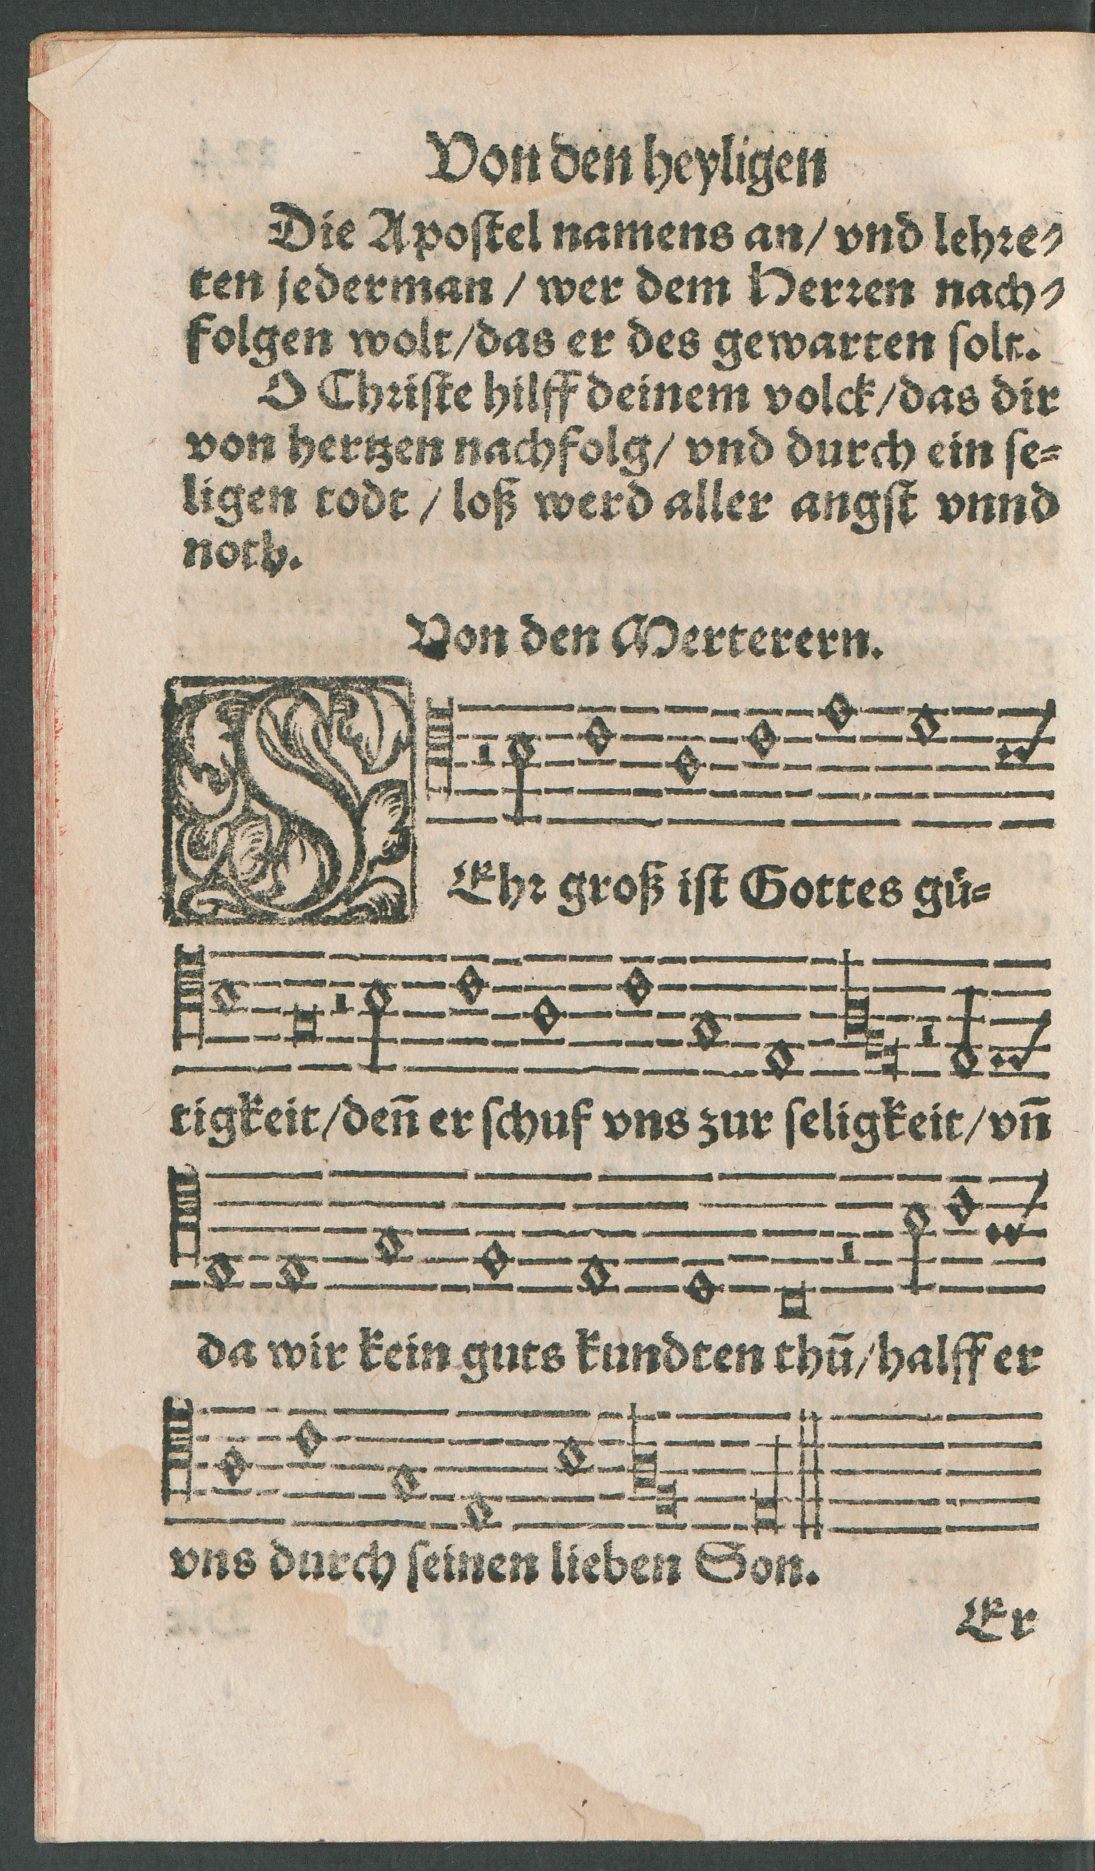 Von den heyligen
Die Apostel namens an/ vnd lehre-
ten jederman / wer dem Herren nach-
folgen wolt/das er des gewarten solt.
O Christe hilff deinem volck/das dir
von hertzen nachfolg/ vnd durch ein se-
ligen todt / loß werd aller angst vnnd
noth.
Von den Merterern.
SEhr groß ist Gottes gü-
tigkeit/deñ er schuf vns zur seligkeit/vñ
da wir kein guts kundten thū/halff er
vns durch seinen lieben Son.
Er